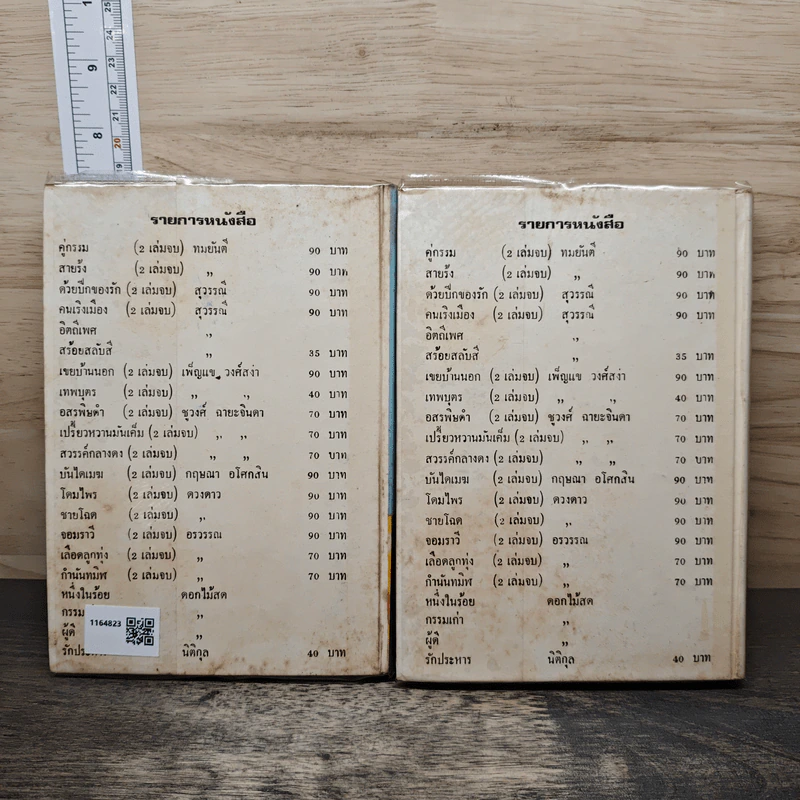 รายการหนังสือ
คู่กรรม (2 เล่มจบ) ทมยันตี 90 บาท
สายรุ้ง (2 เล่มจบ) ,, 90 บาท
ด้วยปีกของรัก (2 เล่มจบ) สุวรรณี 90 บาท
คนเริงเมือง (2 เล่มจบ) สุวรรณี 90 บาท
อิตถีเพศ ,,
สร้อยสลับสี ,, 35 บาท
เขยบ้านนอก (2 เล่มจบ) เพ็ญแข วงศ์สง่า 90 บาท
เทพบุตร (2 เล่มจบ) ,, ,, 40 บาท
อสรพิษดำ (2 เล่มจบ) ชูวงศ์ ฉายะจินดา 70 บาท
เปรี้ยวหวานมันเค็ม (2 เล่มจบ) ,, ,, 70 บาท
สวรรค์กลางดง (2 เล่มจบ) ,, ,, 70 บาท
บันไดเมฆ (2 เล่มจบ) กฤษณา อโศกสิน 90 บาท
โดมไพร (2 เล่มจบ) ดวงดาว 90 บาท
ชายโฉด (2 เล่มจบ) ,, 90 บาท
จอมราวี (2 เล่มจบ) อรวรรณ 90 บาท
เลือดลูกทุ่ง (2 เล่มจบ) ,, 70 บาท
กำนันทมิฬ (2 เล่มจบ) ,, 70 บาท
หนึ่งในร้อย ดอกไม้สด
กรรม ,,
1164823
ผู้ดี ,,
รักประหาร นิติกุล 40 บาท
รายการหนังสือ
คู่กรรม (2 เล่มจบ) ทมยันตี 90 บาท
สายรุ้ง (2 เล่มจบ) ,, 90 บาท
ด้วยปีกของรัก (2 เล่มจบ) สุวรรณี 90 บาท
คนเริงเมือง (2 เล่มจบ) สุวรรณี 90 บาท
อิตถีเพศ ,,
สร้อยสลับสี ,, 35 บาท
เขยบ้านนอก (2 เล่มจบ) เพ็ญแข วงศ์สง่า 90 บาท
เทพบุตร (2 เล่มจบ) ,, ,, 40 บาท
อสรพิษดำ (2 เล่มจบ) ชูวงศ์ ฉายะจินดา 70 บาท
เปรี้ยวหวานมันเค็ม (2 เล่มจบ) ,, ,, 70 บาท
สวรรค์กลางดง (2 เล่มจบ) ,, ,, 70 บาท
บันไดเมฆ (2 เล่มจบ) กฤษณา อโศกสิน 90 บาท
โดมไพร (2 เล่มจบ) ดวงดาว 90 บาท
ชายโฉด (2 เล่มจบ) ,, 90 บาท
จอมราวี (2 เล่มจบ) อรวรรณ 90 บาท
เลือดลูกทุ่ง (2 เล่มจบ) ,, 70 บาท
กำนันทมิฬ (2 เล่มจบ) ,, 70 บาท
หนึ่งในร้อย ดอกไม้สด
กรรมเก่า ,,
ผู้ดี ,,
รักประหาร นิติกุล 40 บาท
25
24
9
23
22
21
8
20
19